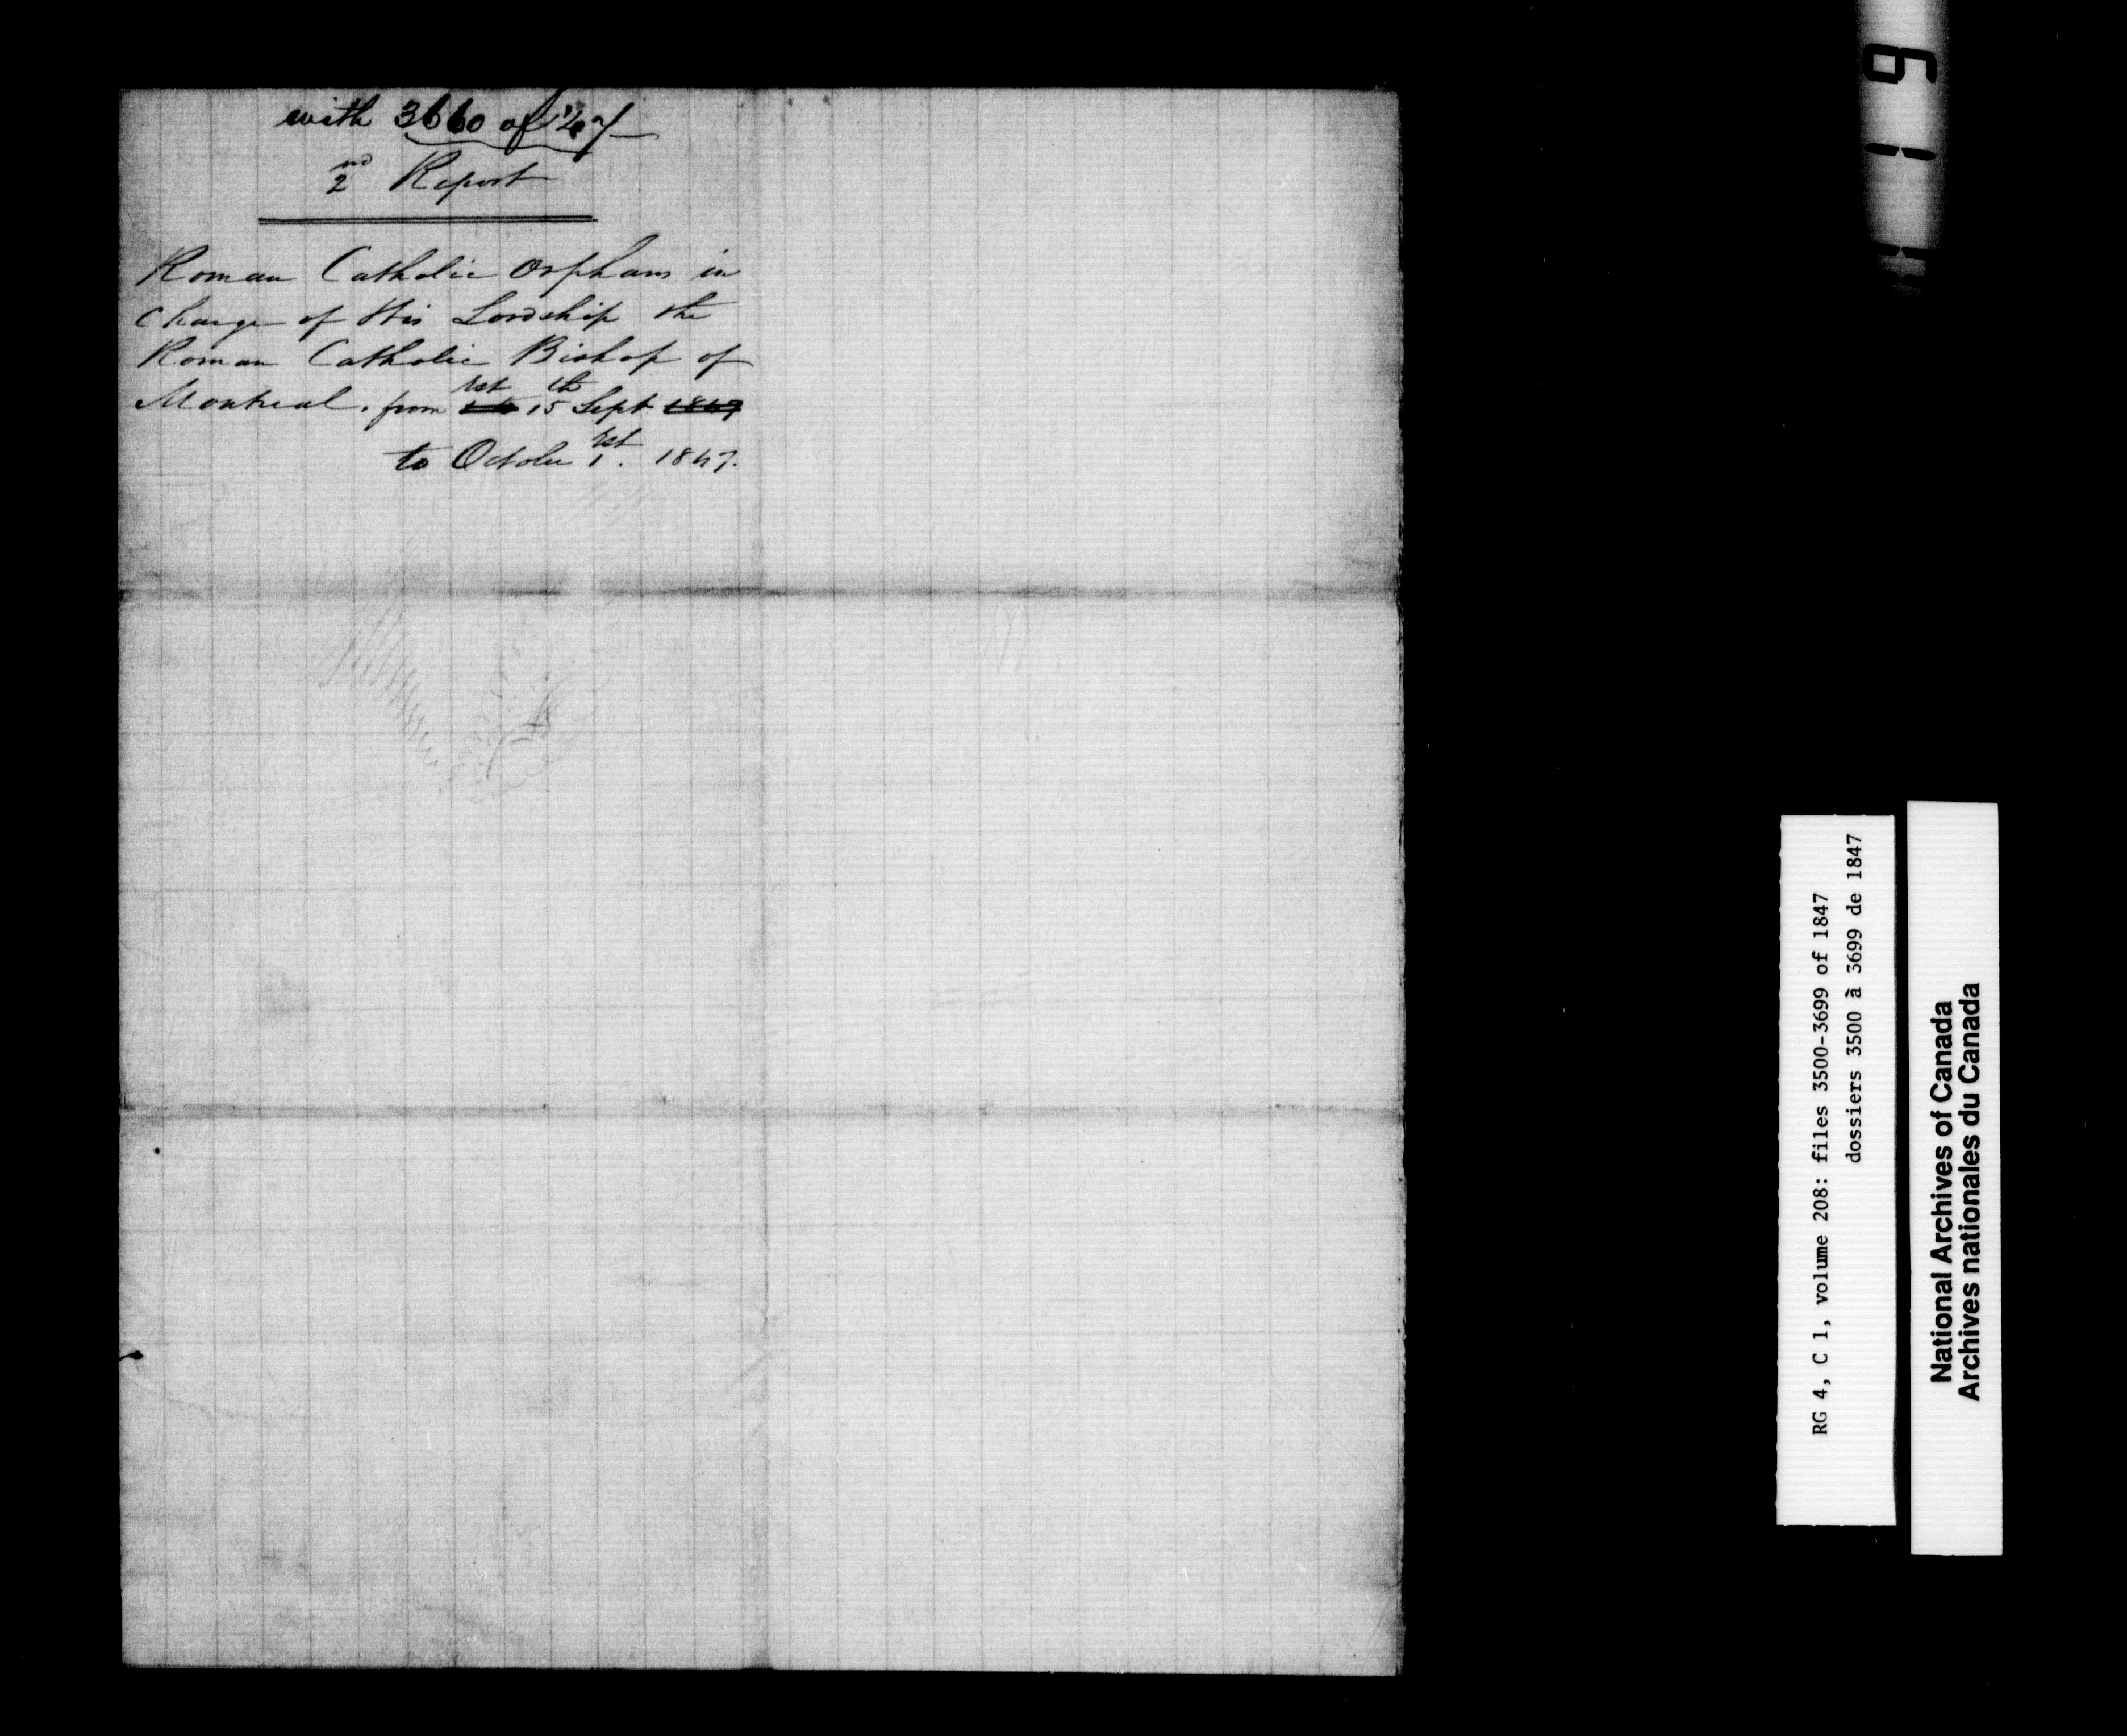 with 3660 of
2nd Report
Roman Catholic Orphans in
Charge of His Lordship the
Roman Catholic Bishop of
Montreal, from 1st 15th Sept 1847
to October 1st. 1847.
RG 4, C 1, volume 208: files 3500-3699 of 1847
dossiers 3500 à 3699 de 1847
National Archives of Canada
Archives nationales du Canada